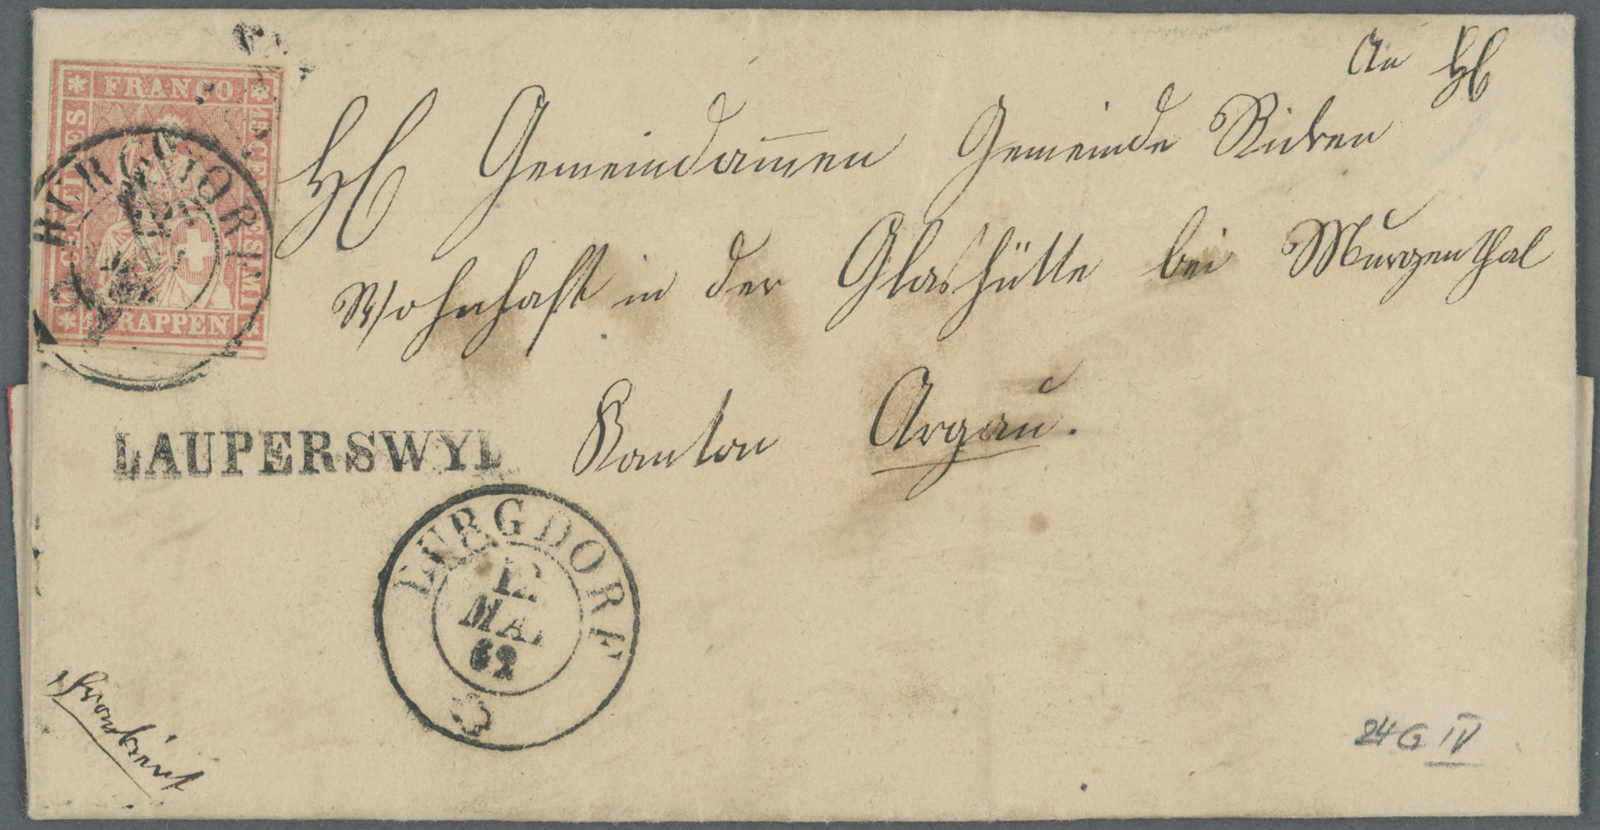 An H
FRANCO
RAPPEN
BURGDORF
H Gemeindammen Gemeinde Riken
Wohnhaft in der Glashütte bei Murgenthal
Kanton Argau.
LAUPERSWYL
BURGDORF
12
MAI
62
24G IV